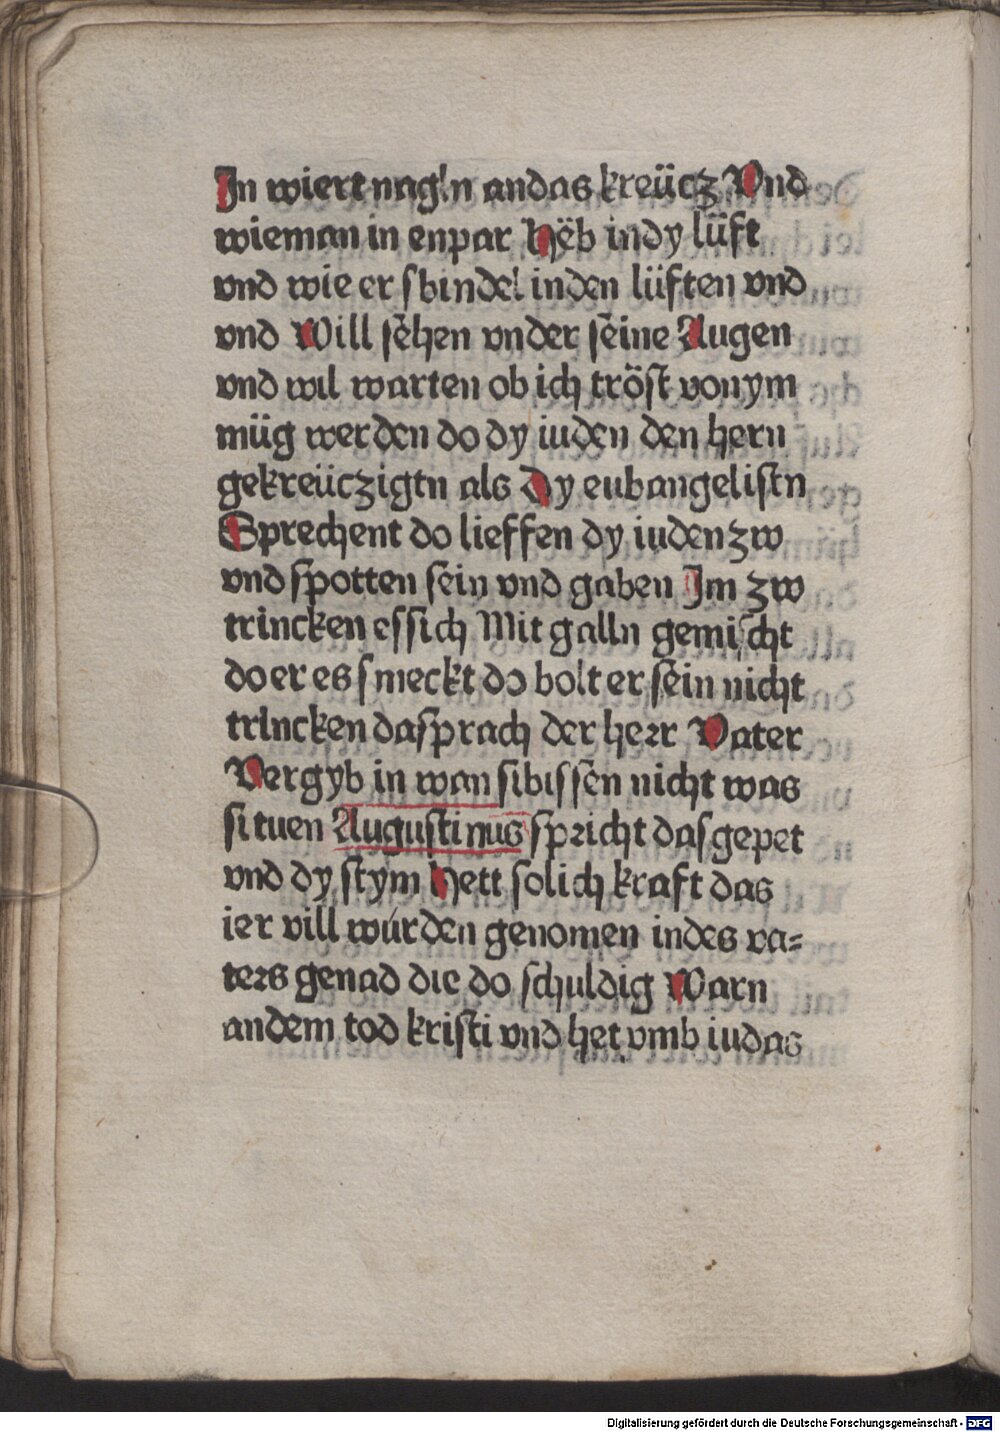 In wiert nagln andas kreücz Vnd
wieman in enpar Hëb indy lüft
vnd wie er sbindel inden lüften vnd
vnd Will sëhen vnder sëine Augen
vnd wil warten ob ich tröst vonym
müg werden do dy iuden den hern
gekreüczigtn als Dy eubangelistn
Sprechent do lieffen dy iuden zw
vnd spotten sein vnd gaben Im zw
trincken essich Mit galln gemischt
do er es smeckt do bolt er sëin nicht
trincken dasprach der herr Vater
Vergyb in wan sibissën nicht was
si tuen Augustinus spricht das gepet
vnd dy stym Hett solich kraft das
ier vill wurden genomen indes va=
ters genad die do schuldig Warn
andem tod kristi vnd het vmb iudas
Digitalisierung gefördert durch die Deutsche Forschungsgemeinschaft - DFG